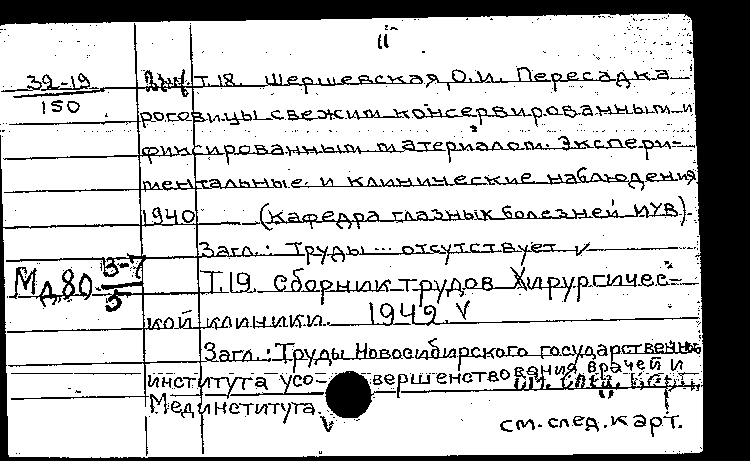 II
39-19 Т.18. Шершевская, О.И. Пересадка
150 роговицы свежим консервированным и
фиксированным материалом. Экспери-
ментальные и клинические наблюдения
1940 (Кафедра глазных болезней ИУВ).
Загл.: Труды... отсутствует ✓
Мд80 В-7/5 Т.19. Сборник трудов Хирургичес-
кой клиники. 1942. V
Загл.: Труды Новосибирского государственно
института усо-вершенствования врачей и
Мединститута. V
см. след. карт.